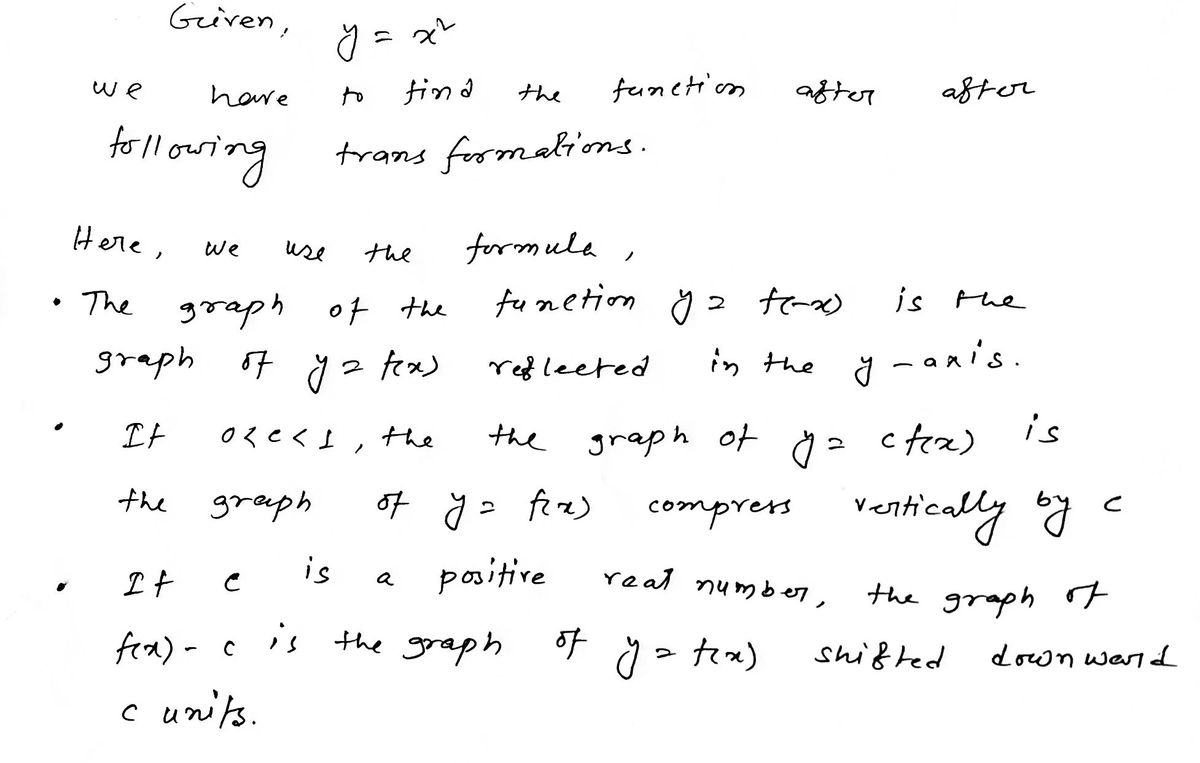 Given, y = x²
we have to find the function after after
following transformations.
Here, we use the formula,
• The graph of the function y = f(-x) is the
graph of y = f(x) reflected in the y-axis.
• If 0 < c < 1, the the graph of y = c f(x) is
the graph of y = f(x) compress vertically by c
• If c is a positive real number, the graph of
f(x) - c is the graph of y = f(x) shifted downward
c units.